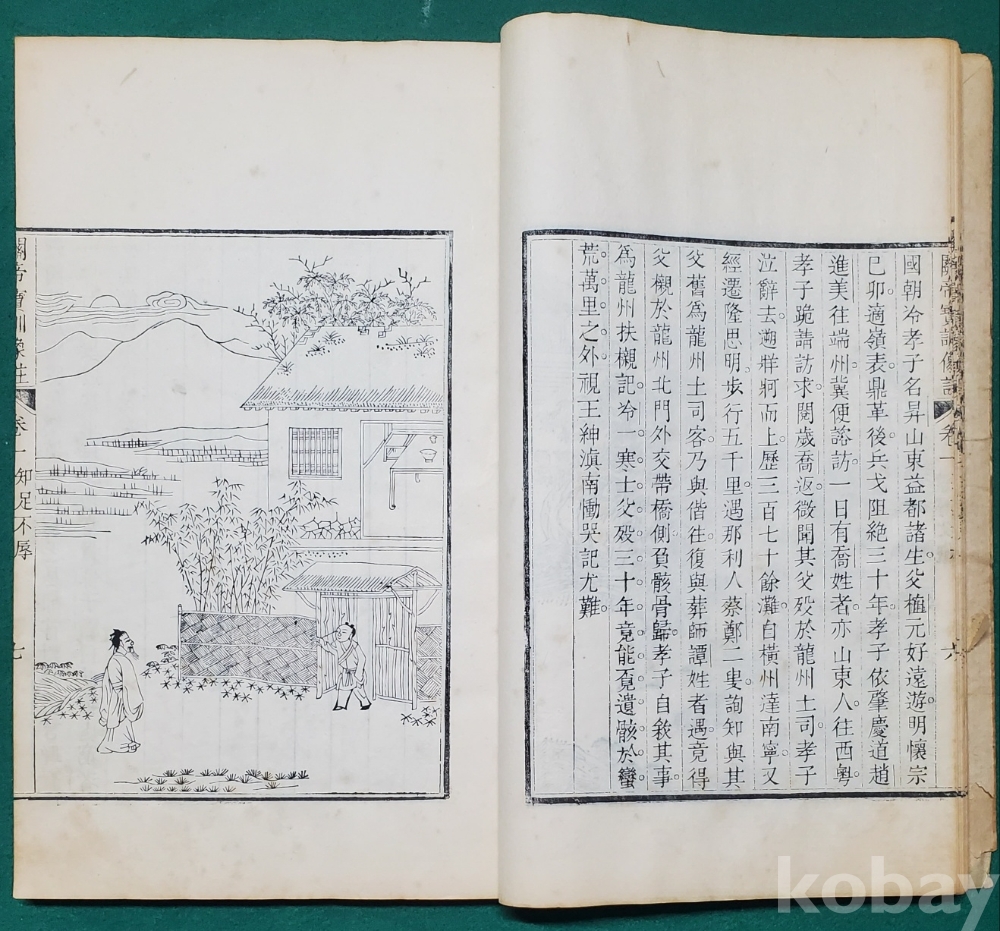 國朝冷孝子名昇山東益都諸生父植元好遠遊明懷宗
己卯適嶺表鼎革後兵戈阻絕三十年孝子依肇慶道趙
進美往端州冀便諮訪一日有喬姓者亦山東人往西粵
孝子跪請訪求閱歲喬返微聞其父歿於龍州土司孝子
泣辭去遡牂牁而上歷三百七十餘灘自橫州達南寧又
經遷隆思明步行五千里遇那利人蔡鄭二叟詢知與其
父舊為龍州土司客乃與偕往復與葬師譚姓者遇竟得
父櫬於龍州北門外交帶橋側負骸骨歸孝子自敘其事
為龍州扶櫬記冷一寒士父歿三十年竟能覓遺骸於蠻
荒萬里之外視王紳滇南慟哭記尤難
卷一
六
關帝寶訓像註
卷一知足不辱
七
kobay